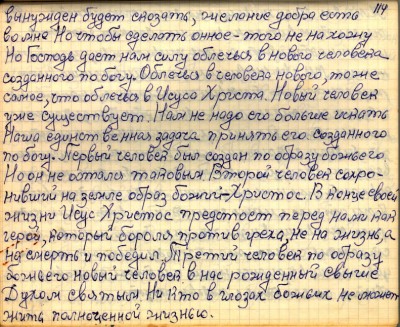 114
вынужден будет сказать, желание добра есть
во мне Но чтобы сделать онное - того не нахожу
Но Господь дает нам силу облечься в нового человека
созданного по богу. Облечься в человека нового, тоже
самое, что облечься в Исуса Христа. Новый человек
уже существует. Нам не надо его больше искать
Наша единственная задача принять его созданного
по богу. Первый человек был создан по образу божьего
Но он не остался таковым. Второй человек сохро-
нивший на земле образ божий - Христос. В конце своей
жизни Исус Христос предстоет перед нами как
герой, который боролся против греха, не на жизнь, а
на смерть и победил. Третий человек по образу
божьего новый человек в нас рожденный свыше
Духом святым. Ни кто в глазах божьих не может
жить полноценной жизнью.